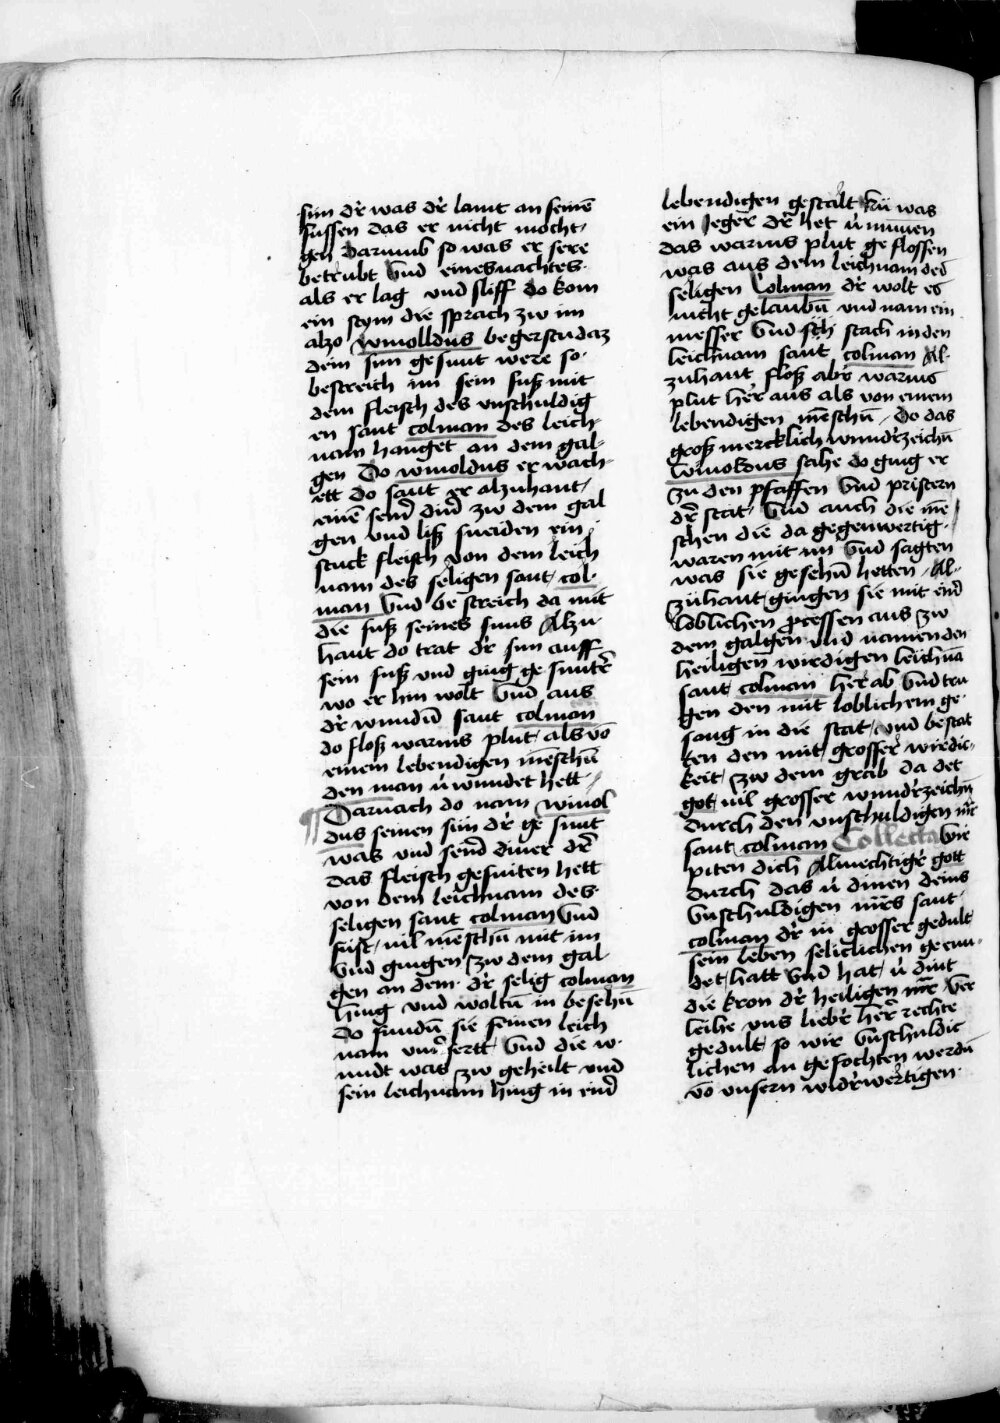 sun dʼr was dʼr lamt an seinē
fussen das er nicht mocht
gen Darumb so was er sere
betrubt Vnd eines nachtes
als er lag vnd sliff do kom
ein stym die sprach zw im
alzo wmolldus begerstu daz
dein sun gesunt were so
bestreich im sein fuß mit
dem fleisch des vnschuldig
en sant colman des leich
nam hanget an dem gal
gen Do wmoldus erwach
ett do sant er alzuhant
einē send dind zw dem gal
gen vnd liß sneiden ein
stuck fleisch von dem leich
nam des seligen sant col
man Vnd bestreich da mit
die fuß seines suns Alzu
hant do trat dʼr sun auff
sein fuß vnd ging gesuntʼr
wo er hin wolt Vnd aus
dʼr wundū sant colman
do floß warms plut als vō
einem lebendigen mēschū
den man v̓wundet hett
Darnach do nam wmol
dus seinen sun dʼr gesunt
was vnd send diner dʼr
das fleisch gesniten hett
von dem leichnam des
seligen sant colman Vnd
sust vil mēschū mit im
Vnd gingen zw dem gal
gen an dem dʼr selig colman
hing vnd woltū in besehū
do fundū sie seinen leich
nam vnv̓sertt Vnd die w
undt was zw geheilt vnd
sein leichnam hing in eind
lebendigen gestalt Nu was
ein Jeger dʼr het v̓numen
das warms plut geflossen
was aus dem leichnam des
seligen Colman dʼr wolt es
nicht gelaubū vnd nam ein
messer Vnd stach in den
leichnam sant colman Al
zuhant floß abʼr warms
plut hʼer aus als von einem
lebendigen mēschū Do das
groß mercklich wundʼrzeichū
wmoldus sahe do ging er
zu den pfaffen Vnd pristern
dʼr stat Vnd auch die mē
schen die da gegenwertig
waren mit im Vnd sagten
was sie gesehū hetten Al
zuhant gingen sie mit eind
loblichen pcessen aus zw
dem galgen vnd namen den
heiligen wirdigen leichnā
sant colman herab Vnd tru
gen den mit loblichem ge
sang in die stat vnd bestat
ten den mit grosser wirdic
keit zw dem grab da det
got vil grosser wundʼrzeichū
durch den vnschuldigen mr̄
sant colman Collecta Wir
piten dich Almechtigʼr gott
durch das v̓dinen deins
Vnschuldigen mrs sant
colman dʼr in grosser gedult
sein leben seliclichen geen
det hatt Vnd hat v̓dint
die kron dʼr heiligen mr̄ Ver
leihe vns liebʼr hʼer rechte
gedult so wir Vnschuldic
lichen an gefochten werdū
vō vnsern widʼrwertigen